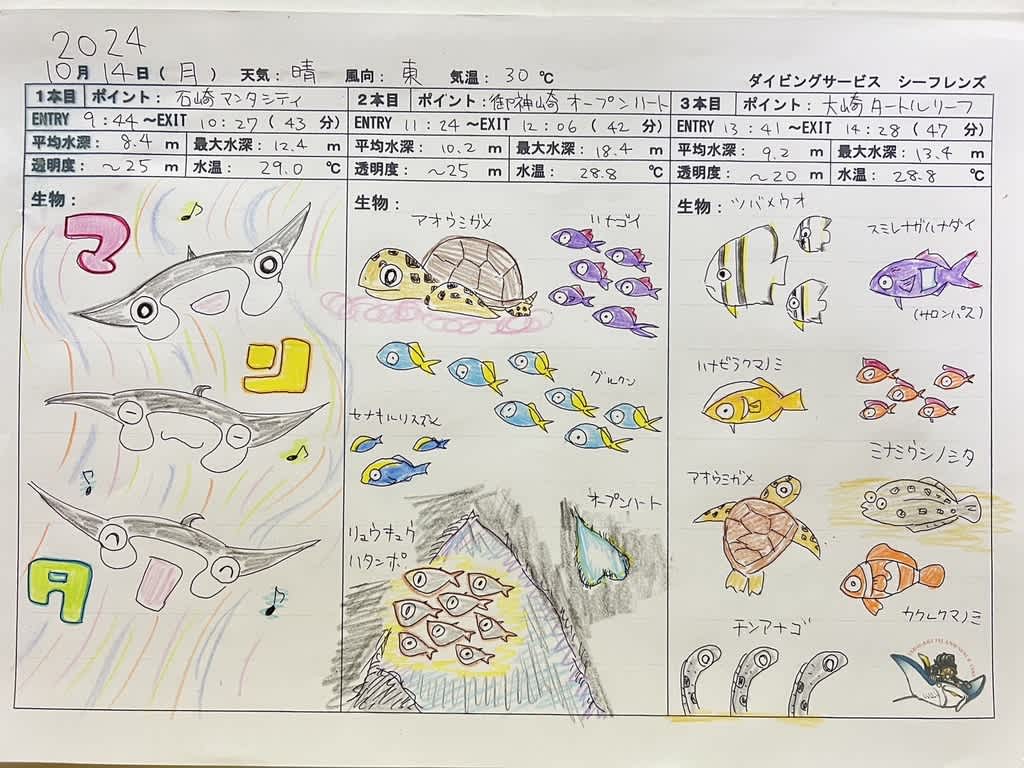 2024
10月 14日(月) 天気: 晴 風向: 東 気温: 30℃
ダイビングサービス シーフレンズ
1本目 ポイント: 石崎マンタシティ
ENTRY 9:44 ～EXIT 10:27 (43 分)
平均水深: 8.4 m 最大水深: 12.4 m
透明度: ～25 m 水温: 29.0 ℃
生物:
マ
ン
タ
2本目 ポイント: 御神崎オープンハート
ENTRY 11:24 ～EXIT 12:06 (42 分)
平均水深: 10.2 m 最大水深: 18.4 m
透明度: ～25 m 水温: 28.8 ℃
生物:
アオウミガメ
ハナゴイ
グルクン
セナキルリスズメ
オープンハート
リュウキュウ
ハタンポ
3本目 ポイント: 大崎タートルリーフ
ENTRY 13:41 ～EXIT 14:28 (47 分)
平均水深: 9.2 m 最大水深: 13.4 m
透明度: ～20 m 水温: 28.8 ℃
生物: ツバメウオ
スミレナガハナダイ
(サロンパス)
ハナビラクマノミ
ミナミウシノシタ
アオウミガメ
カクレクマノミ
チンアナゴ